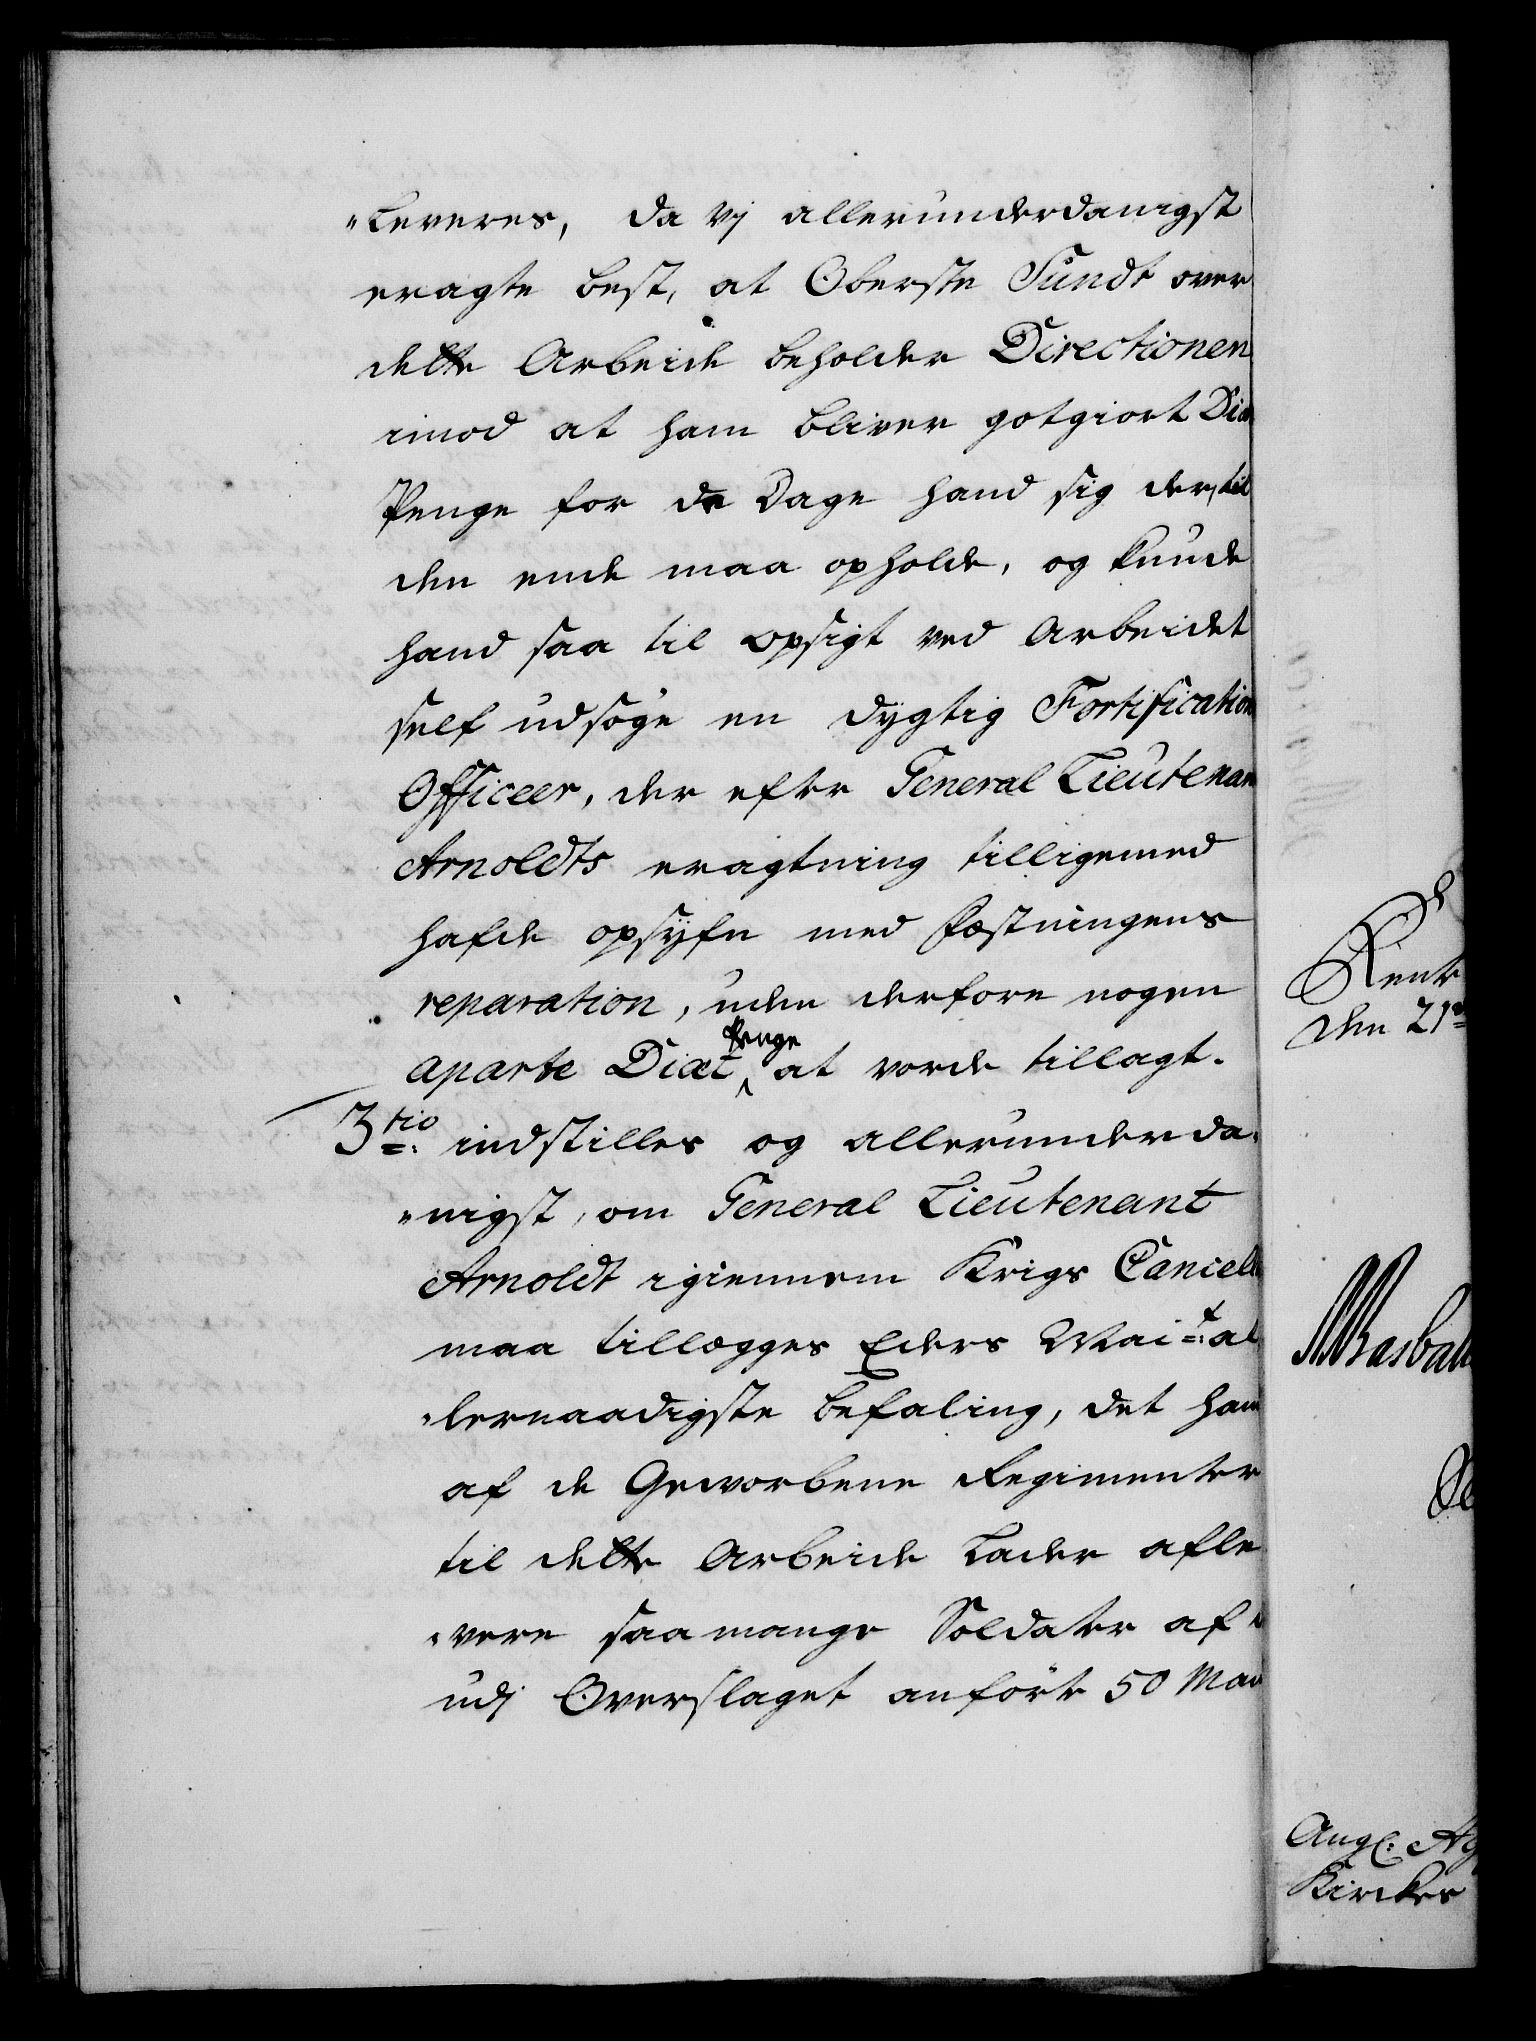 "leveres, da vj allerunderdanigst
eragte best, at Oberste Sundt over
dette Arbeide beholder Directionen
imod at ham bliver gotgiort Diæ
Penge for de Dage hand sig der til
den ende maa opholde, og kunde
hand saa til opsigt ved Arbeidet
self udsøge en dygtig Fortification
Officeer, der efter General Lieutenan
Arnoldts eragtning tilligemed
hafde opsyn med Fæstningens
reparation, uden derfore nogen
aparte Diæt Penge at vorde tillagt.
3tio: indstilles og allerunderda-
"nigst, om General Lieutenant
Arnoldt igiennem Krigs Cancel
maa tillægges Eders Mait: al
"lernaadigste befaling, det han
af de Gevorbene Regimenter
til dette Arbeide lader afle
"vere saa mange Soldater af
udj Overslaget anførte 50 Man
Rente
den 21
Ang:
Kircker